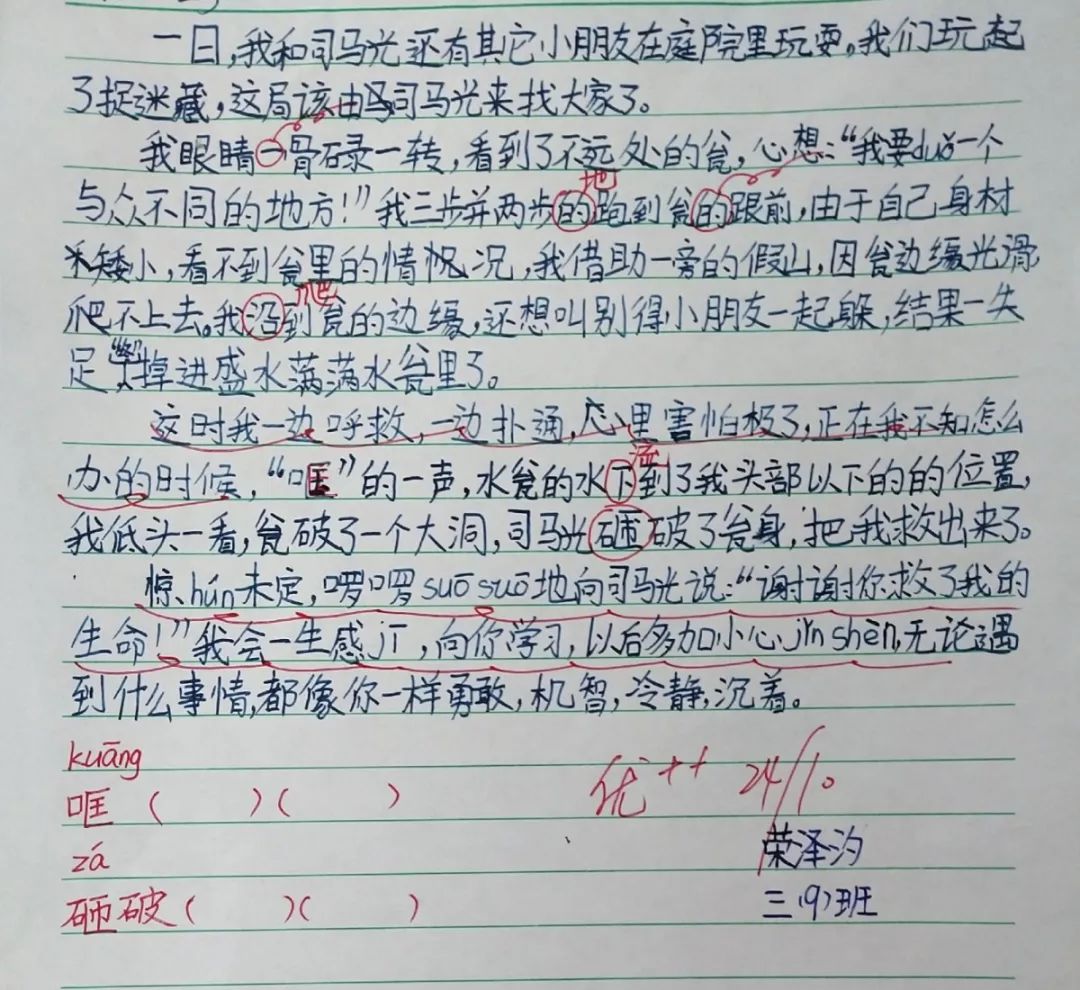 一日,我和司马光还有其它小朋友在庭院里玩耍。我们玩起
了捉迷藏,这局该由司马光来找大家了。
我眼睛一骨碌一转,看到了不远处的瓮,心想:“我要duǒ一个
地
与众不同的地方!”我三步并两步的跑到瓮的跟前,由于自己身材
矮小,看不到瓮里的情况,我借助一旁的假山,因瓮边缘光滑
爬
爬不上去。我沿到瓮的边缘,还想叫别得小朋友一起躲,结果一失
足掉进盛水满满水瓮里了。
这时我一边呼救,一边扑通,心里害怕极了,正在我不知怎么
流
办的时候,“哐”的一声,水瓮的水下到了我头部以下的的位置,
我低头一看,瓮破了一个大洞,司马光砸破了瓮身,把我救出来了。
惊hún未定,啰啰suōsuō地向司马光说:“谢谢你救了我的
生命!”我会一生感jī,向你学习,以后多加小心jǐn shèn,无论遇
到什么事情,都像你一样勇敢,机智,冷静,沉着。
kuāng
哐( )( )
优++ 24/10
zá
荣泽汐
砸破( )( )
三(9)班